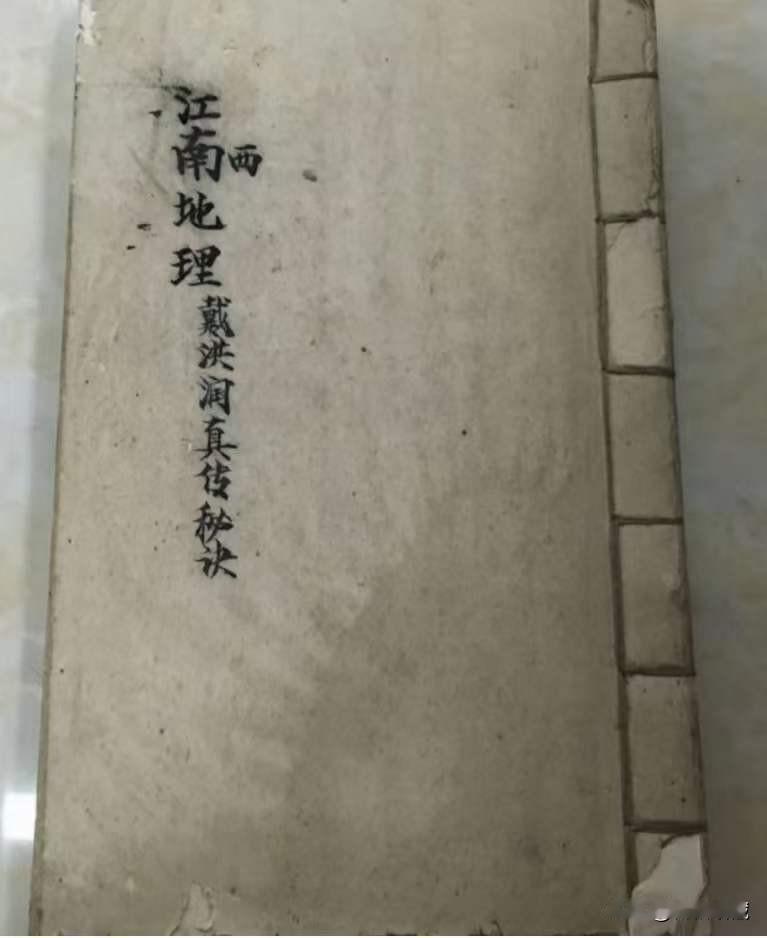 江南西地理
戴洪润真传秘诀